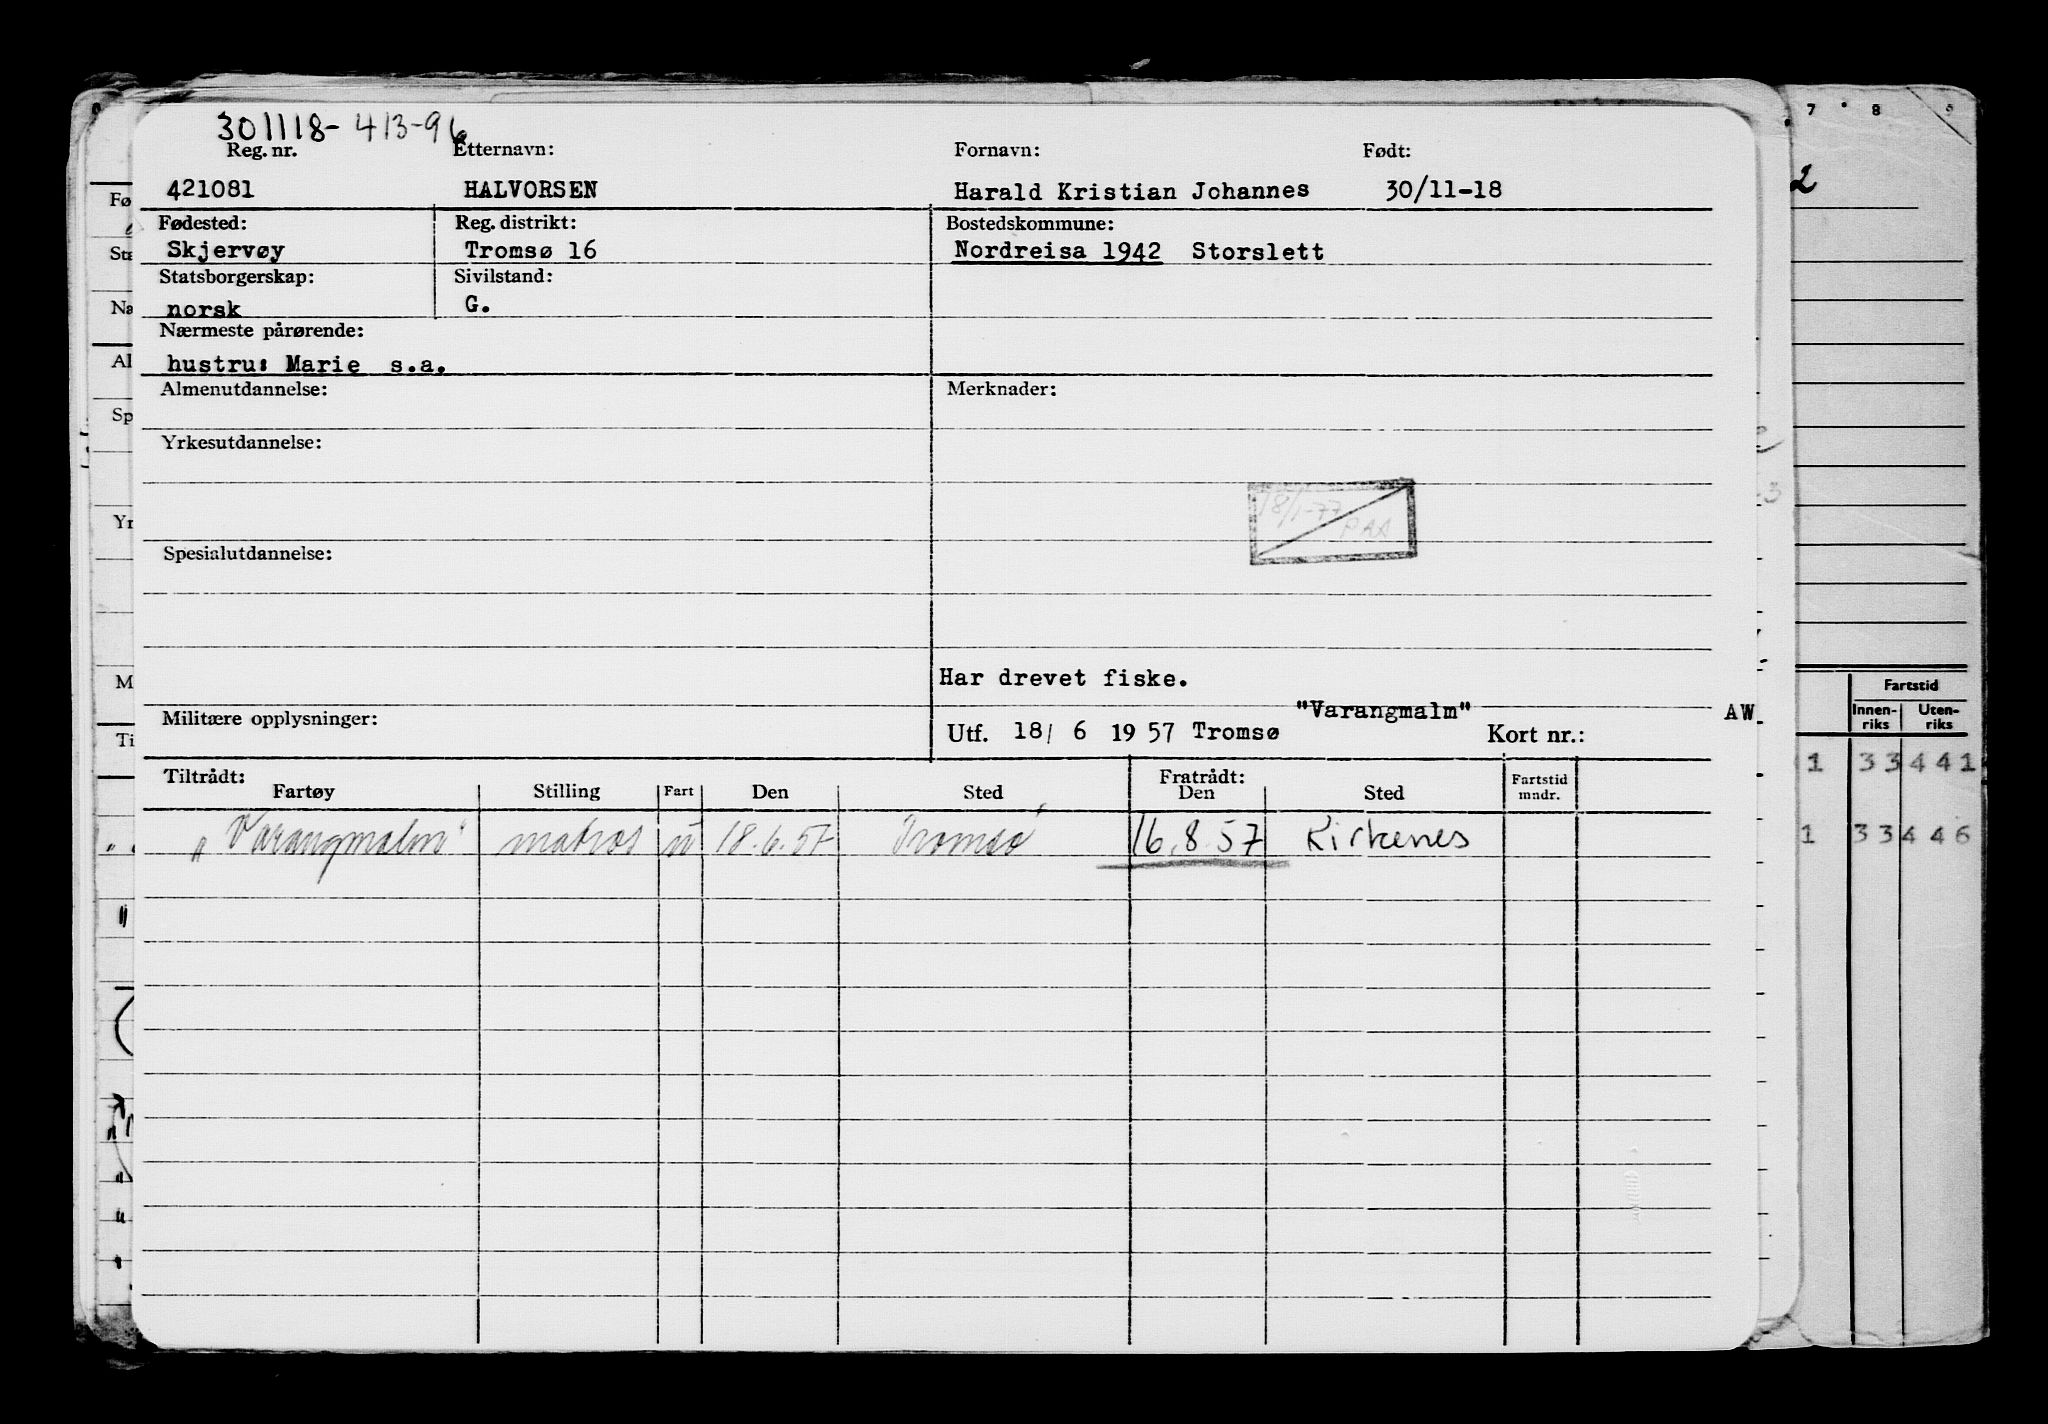 301118-413-96
Reg. nr. Etternavn: Fornavn: Født:
421081 HALVORSEN Harald Kristian Johannes 30/11-18
Fødested: Reg. distrikt: Bostedskommune:
Skjervøy Tromsø 16 Nordreisa 1942 Storslett
Statsborgerskap: Sivilstand:
norsk G.
Nærmeste pårørende:
hustru: Marie s.a.
Almenutdannelse: Merknader:
Yrkesutdannelse:
18/1-77
PAA
Spesialutdannelse:
Har drevet fiske.
"Varangmalm" AW.
Militære opplysninger: Utf. 18/ 6 1957 Tromsø Kort nr.:
Tiltrådt: Fratrådt:
Fartøy Stilling Fart Den Sted Den Sted Fartstid mndr.
"Varangmalm" matros u 18.6.57 Tromsø 16.8.57 Kirkenes
7 8 9
2
Fartstid
Innen-riks Uten-riks
1 33441
1 33446
Fø
Stæ
Na
Al
Sp
Yr
M
Ti